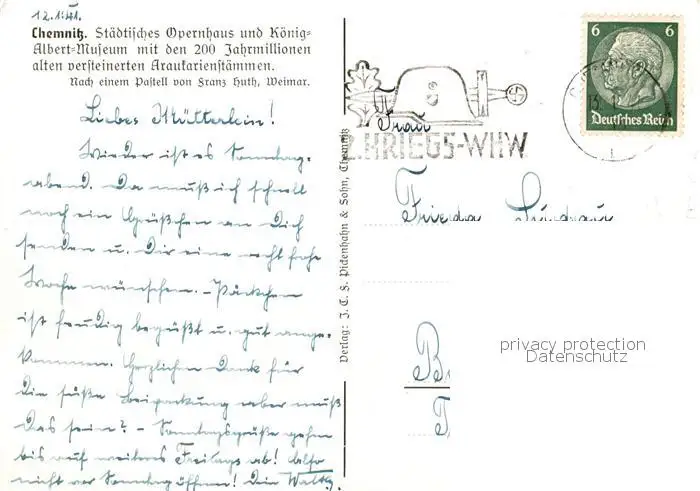 12.1.41.
Chemnitz. Städtisches Opernhaus und König-
Albert-Museum mit den 200 Jahrmillionen
alten versteinerten Araukarienstämmen.
Nach einem Pastell von Franz Huth, Weimar.
Liebes Mütterlein!
Wieder ist es Sonntag-
abend. Da muß ich schnell
noch ein Grüßchen an Dich
senden u. Dir eine recht frohe
Woche wünschen. – Päckchen
ist freudig begrüßt u. gut ange-
kommen. Herzlichen Dank für
die süße Beipackung aber muß
das sein? – Sonntagsgrüße gehen
bis auf weiteres Freitags ab! Also
nicht vor Sonntag öffnen! Dein
Verlag: J. C. F. Pickenhahn & Sohn, Chemnitz
6 6
Deutsches Reich
2. KRIEGS-WHW
Frau
Frieda
B
T
privacy protection
Datenschutz